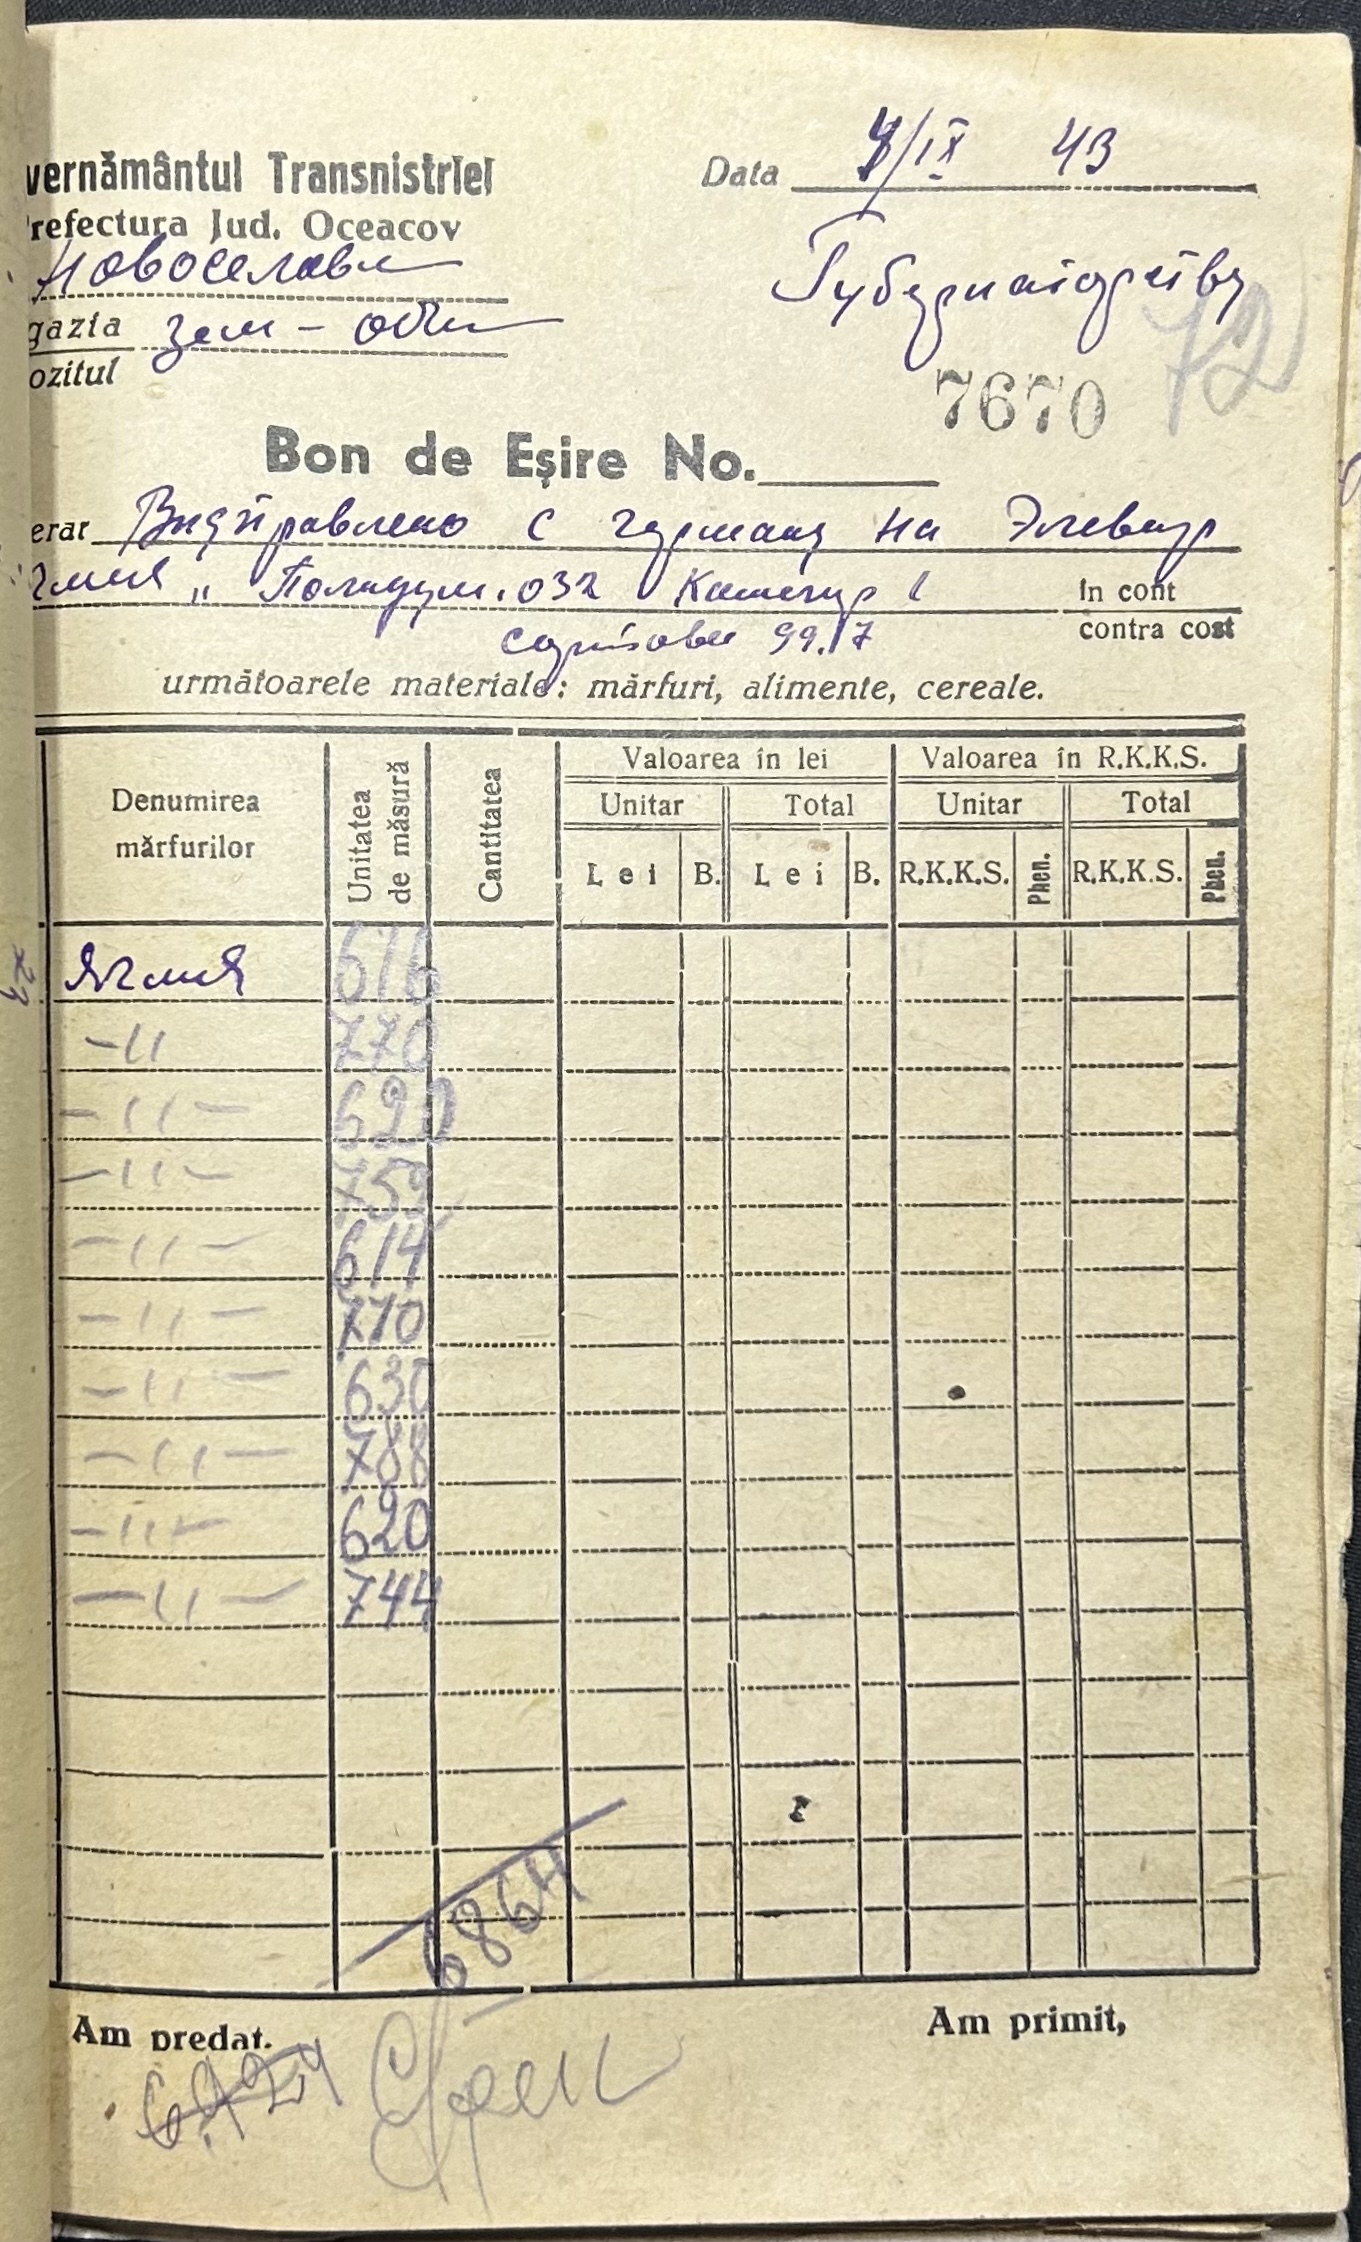 vernământul Transnistriei
Data 7/IX 43
refectura Jud. Oceacov
Новоселовк
gazia зем-общ
Губернаторству
72
ozitul
7670
Bon de Eşire No.
erar Видправлено с гарману на Элеватр
чмня „ 032 Категор 1
in cont
contra cost
сортовы 99.17
următoarele materiale: mărfuri, alimente, cereale.
Denumirea mărfurilor
Unitatea de măsură
Cantitatea
Valoarea în lei
Valoarea în R.K.K.S.
Unitar
Total
Unitar
Total
Lei
B.
Lei
B.
R.K.K.S.
Phen.
R.K.K.S.
Phen.
Ячмня 616
-〃 770
-〃- 620
-〃- 759
-〃- 614
-〃- 770
-〃- 630
-〃- 788
-〃- 620
-〃- 744
6864
Am predat.
Am primit,